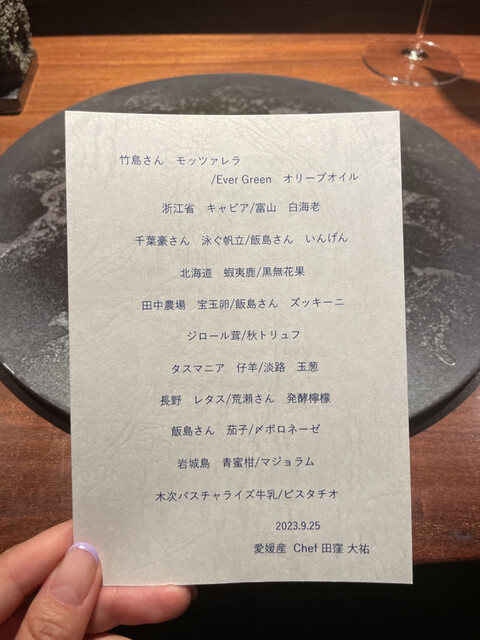 竹島さん　モッツァレラ
/Ever Green　オリーブオイル
浙江省　キャビア/富山　白海老
千葉豪さん　泳ぐ帆立/飯島さん　いんげん
北海道　蝦夷鹿/黒無花果
田中農場　宝玉卵/飯島さん　ズッキーニ
ジロール茸/秋トリュフ
タスマニア　仔羊/淡路　玉葱
長野　レタス/荒瀬さん　発酵檸檬
飯島さん　茄子/〆ボロネーゼ
岩城島　青蜜柑/マジョラム
木次パスチャライズ牛乳/ピスタチオ
2023.9.25
愛媛産　Chef 田窪 大祐